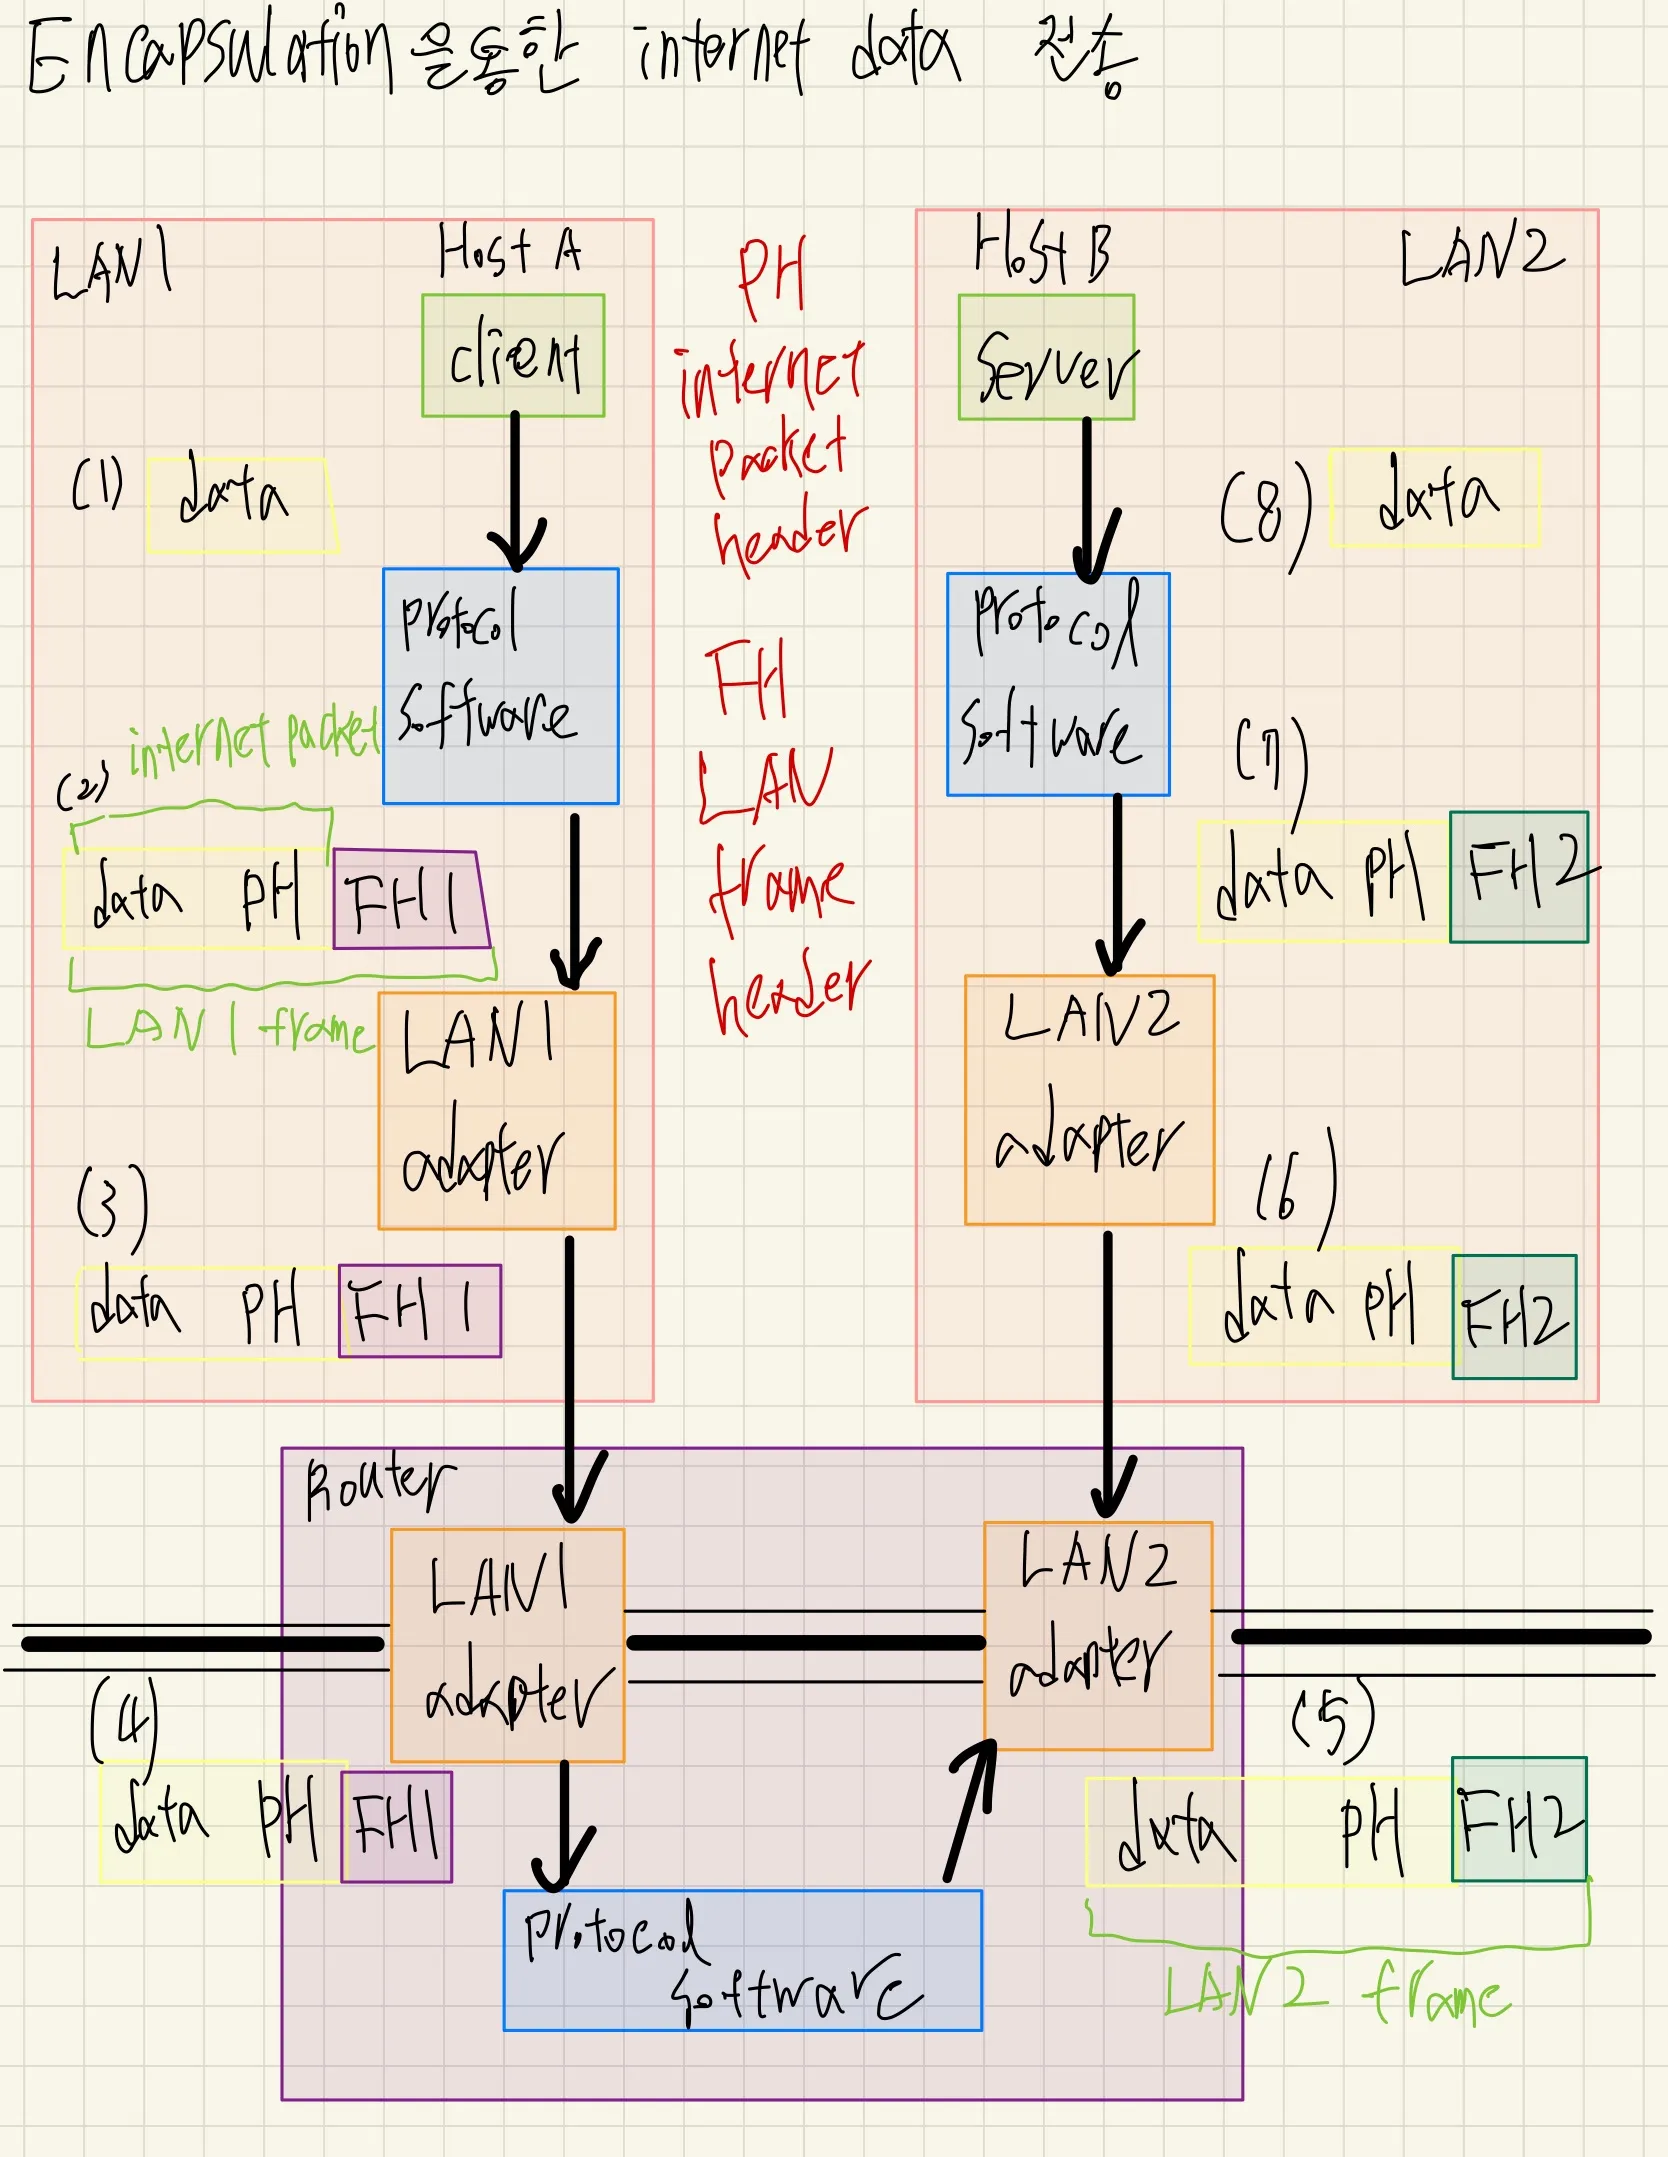 Encapsulation을통한 internet data 전송
LAN1
Host A
client
(1) data
protocol
software
internet packet
(2)
data PH FH1
LAN1 frame
LAN1
adapter
(3)
data PH FH1
PH
internet
packet
header
FH
LAN
frame
header
Host B
LAN2
server
(8) data
protocol
software
(7)
data PH FH2
LAN2
adapter
(6)
data PH FH2
Router
LAN1
adapter
LAN2
adapter
(4)
data PH FH1
(5)
data PH FH2
LAN2 frame
protocol
software